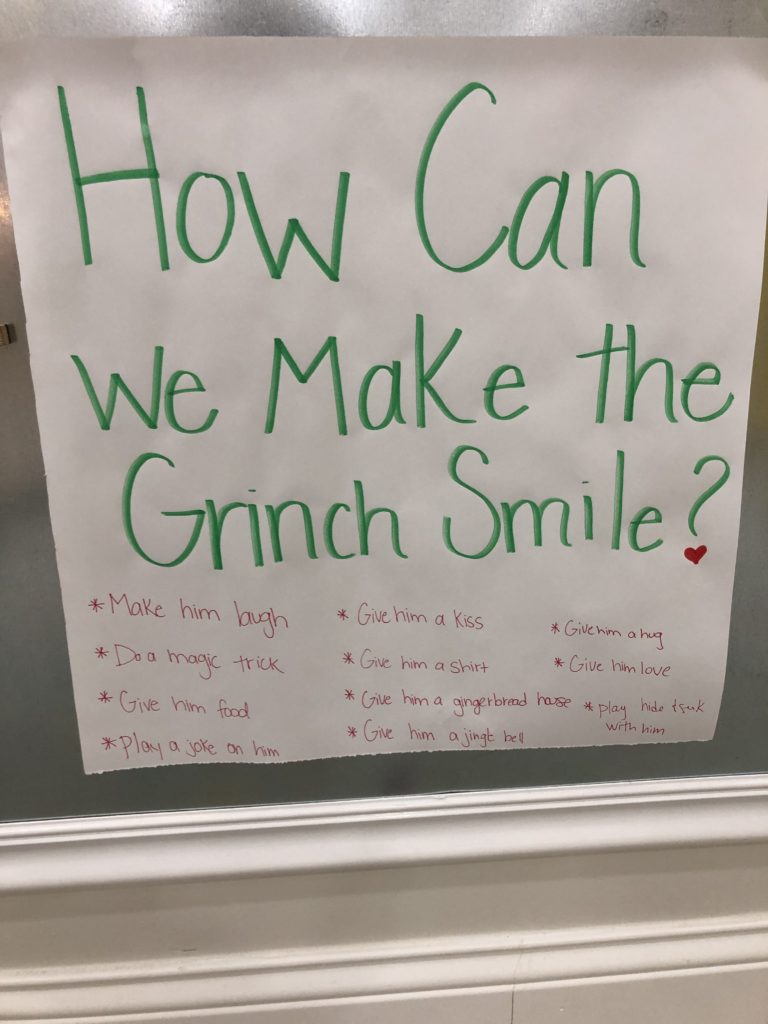 How Can
We Make the
Grinch Smile?
* Make him laugh
* Do a magic trick
* Give him food
* Play a joke on him
* Give him a kiss
* Give him a shirt
* Give him a gingerbread house
* Give him a jingl bell
* Give him a hug
* Give him love
* play hide + seek
with him